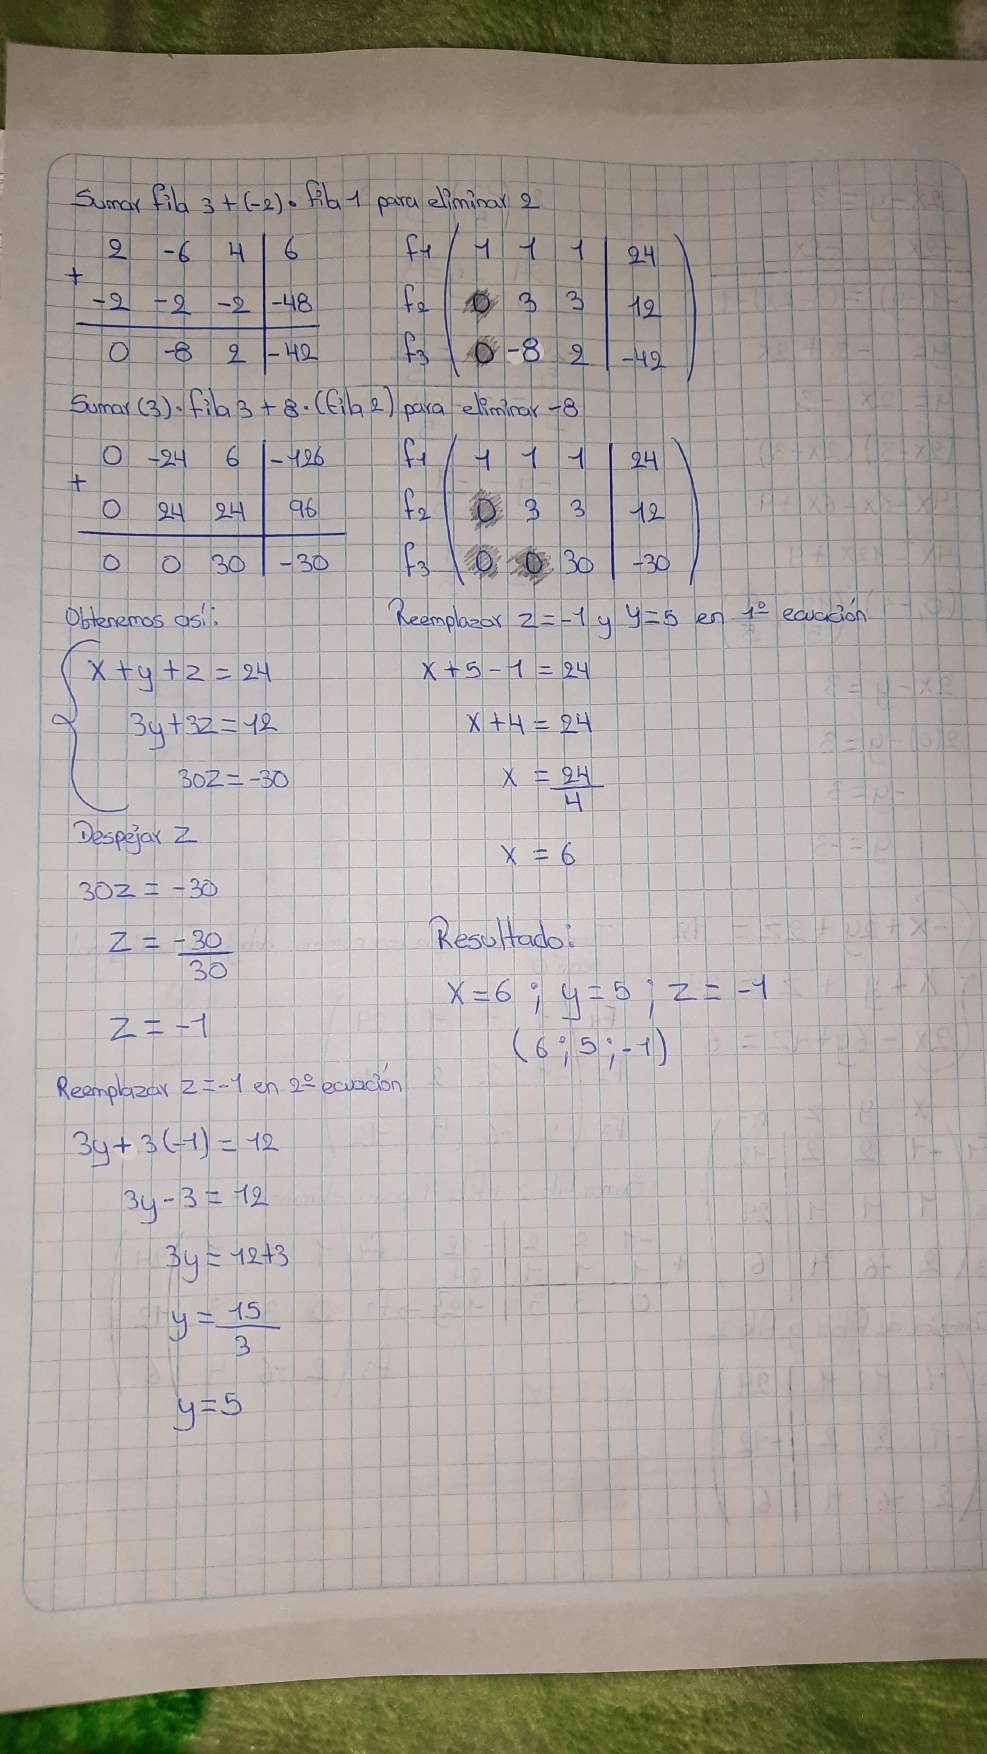 Sumar fila 3 + (-2) · fila 1 para eliminar 2
2 -6 4 | 6
+
-2 -2 -2 | -48
0 -8 2 | -42
f1 ( 1 1 1 | 24 )
f2 ( 0 3 3 | 12 )
f3 ( 0 -8 2 | -42 )
Sumar (3) · fila 3 + 8 · (fila 2) para eliminar -8
0 -24 6 | -126
+
0 24 24 | 96
0 0 30 | -30
f1 ( 1 1 1 | 24 )
f2 ( 0 3 3 | 12 )
f3 ( 0 0 30 | -30 )
Obtenemos así:
x + y + z = 24
3y + 3z = 12
30z = -30
Despejar z
30z = -30
z = -30
30
z = -1
Reemplazar z = -1 en 2º ecuación
3y + 3(-1) = 12
3y - 3 = 12
3y = 12+3
y = 15
3
y = 5
Reemplazar z = -1 y y = 5 en 1º ecuación
x + 5 - 1 = 24
x + 4 = 24
x = 24
4
x = 6
Resultado:
x = 6 ; y = 5 ; z = -1
(6 ; 5 ; -1)